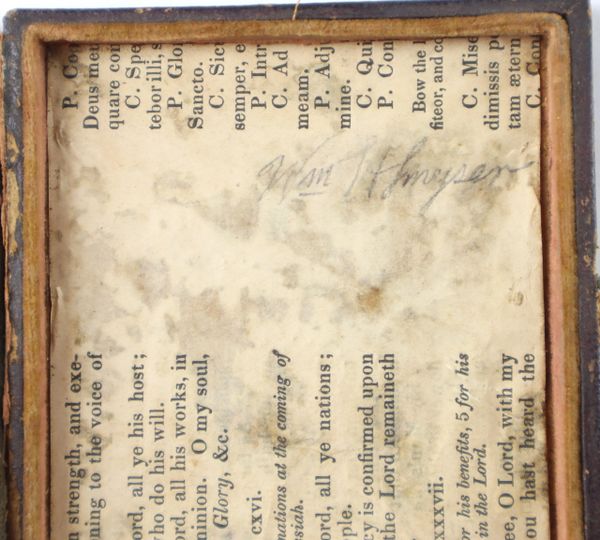 P. Coo
Deus meu
quare con
C. Spe
tebor illi, s
P. Glor
Sancto.
C. Sic
semper, e
P. Intr
C. Ad
meam.
P. Adj
mine.
C. Qui
P. Con
Bow the
fiteor, and co
C. Mise
dimissis p
tam ætern
Wm H
n strength, and exe-
ning to the voice of
ord, all ye his host;
ho do his will.
ord, all his works, in
minion. O my soul,
Glory, &c.
cxvi.
nations at the coming of
ssiah.
ord, all ye nations;
ple.
cy is confirmed upon
the Lord remaineth
xxxvii.
or his benefits, 5 for his
in the Lord.
ee, O Lord, with my
ou hast heard the